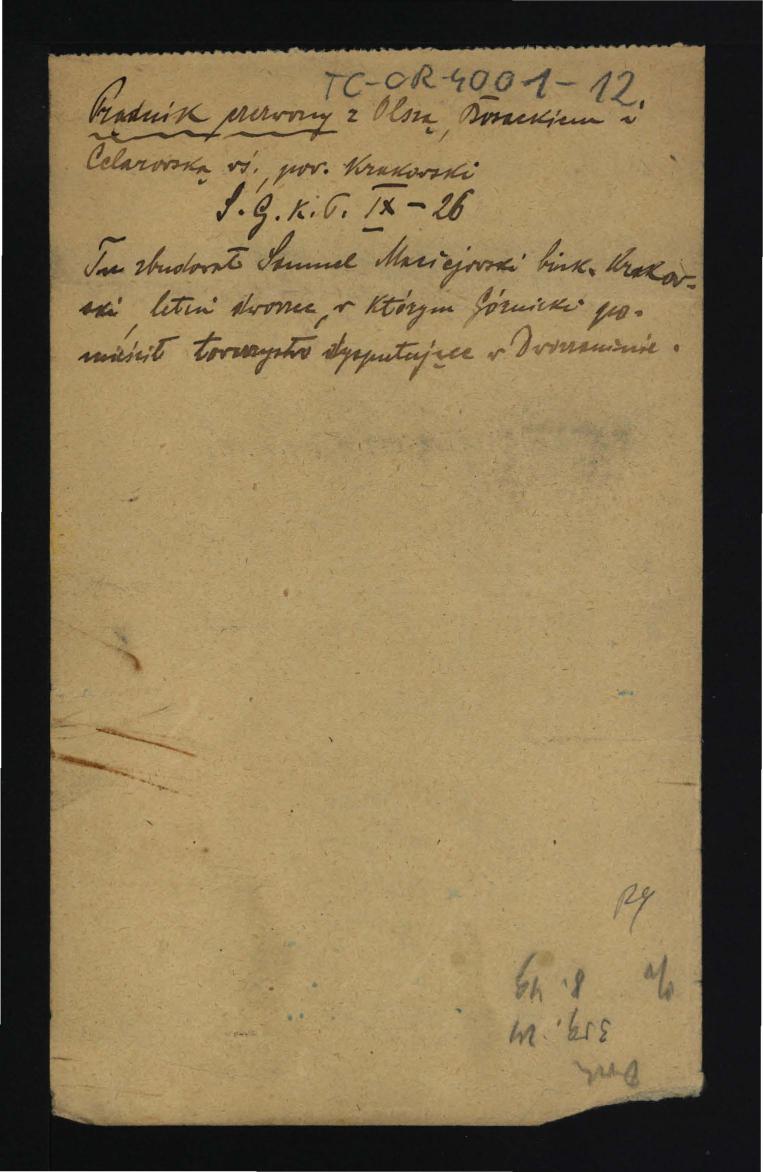 TC-OR-4001-12
Prądnik czerwony z Olszą, Rosackiem i
Celarowską wś., pow. Krakowski
S. G. K. P. IX – 26
Tu zbudował Samuel Maciejowski bisk. Krakow-
ski, letni dworzec, w którym Górnicki po-
mieścił towarzystwo dysputujące w Dworzaninie.